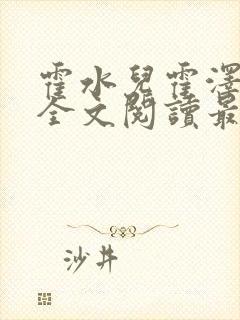 霍水兒霍澤
全文閱讀最
沙井